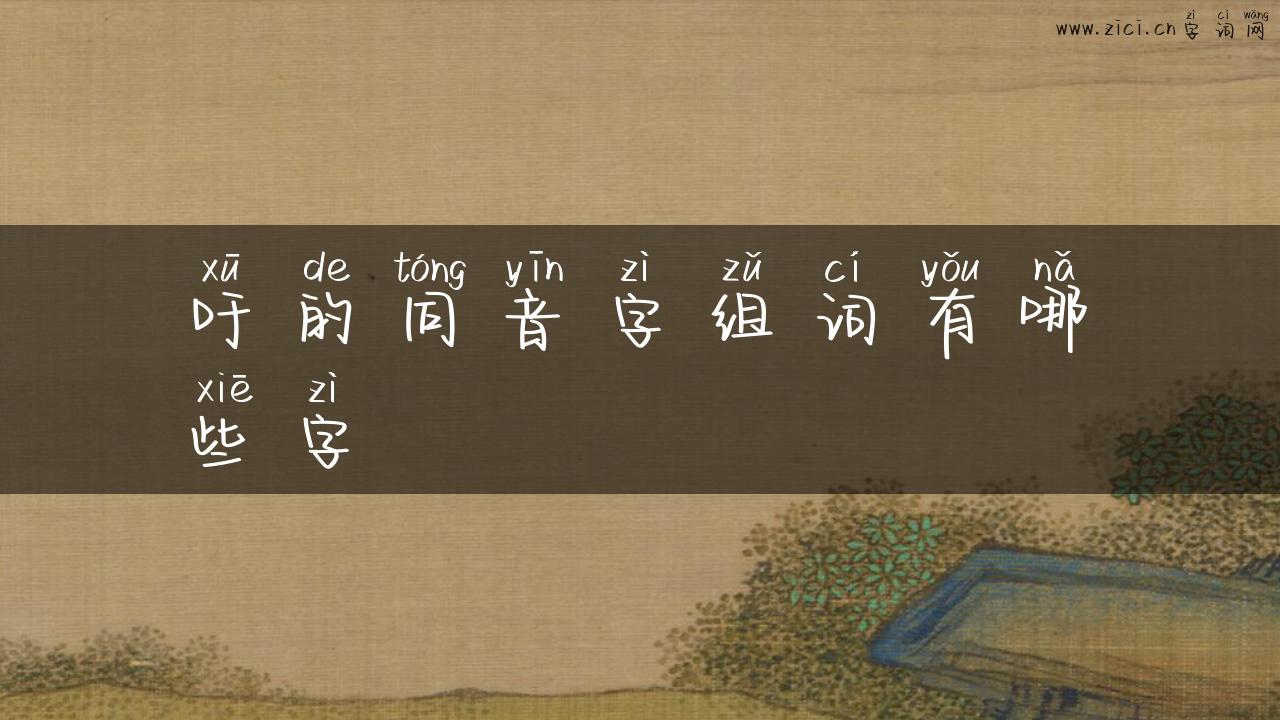 zì cí wǎng
www.zici.cn 字词网
xū de tóng yīn zì zǔ cí yǒu nǎ
吁的同音字组词有哪
xiē zì
些字